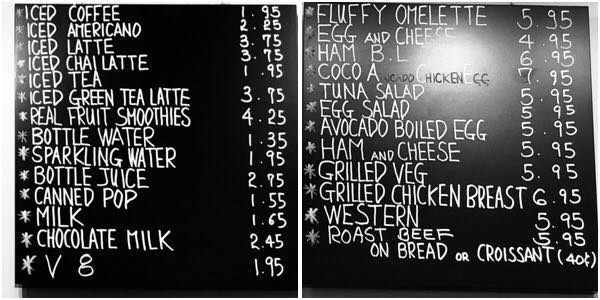 ICED COFFEE 1.95
ICED AMERICANO 2.25
ICED LATTE 3.75
ICED CHAI LATTE 3.75
ICED TEA 1.95
ICED GREEN TEA LATTE 3.75
REAL FRUIT SMOOTHIES 4.25
BOTTLE WATER 1.35
SPARKLING WATER 1.95
BOTTLE JUICE 2.75
CANNED POP 1.55
MILK 1.65
CHOCOLATE MILK 2.45
V 8 1.95
FLUFFY OMELETTE 5.95
EGG AND CHEESE 4.95
HAM B.L 6.95
COCO A AVOCADO CHICKEN EGG 7.95
TUNA SALAD 5.95
EGG SALAD 5.95
AVOCADO BOILED EGG 5.95
HAM AND CHEESE 5.95
GRILLED VEG 5.95
GRILLED CHICKEN BREAST 6.95
WESTERN 5.95
ROAST BEEF 5.95
ON BREAD OR CROISSANT (40¢)